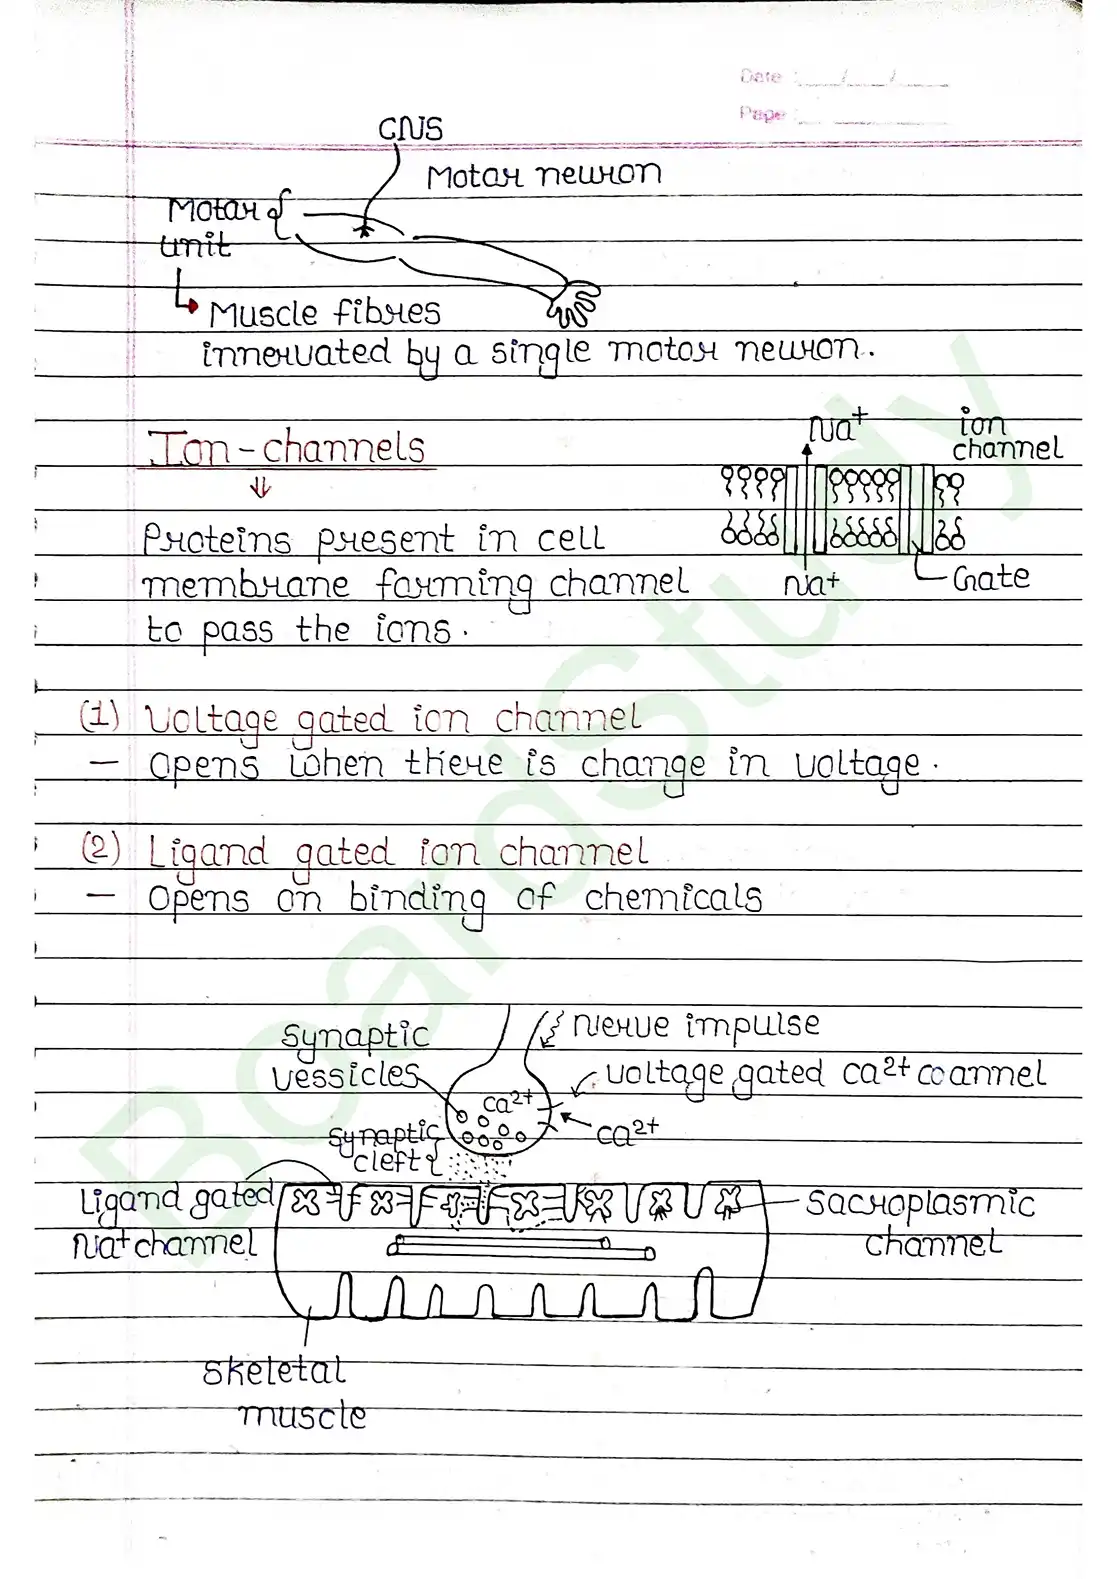 Date :__/__/__
Page :
CNS
Motor neuron
Motor
unit
Muscle fibres
innervated by a single motor neuron.
Ion-channels
Na+
ion
channel
Proteins present in cell
membrane forming channel
Na+
Gate
to pass the ions.
(1) Voltage gated ion channel
– Opens when there is change in voltage.
(2) Ligand gated ion channel
– Opens on binding of chemicals
Synaptic
vessicles
Nerve impulse
Voltage gated Ca2+ coannel
Ca2+
Ca2+
Synaptic
cleft
Ligand gated
Na+ channel
Sacroplasmic
channel
Skeletal
muscle
BoardStudy